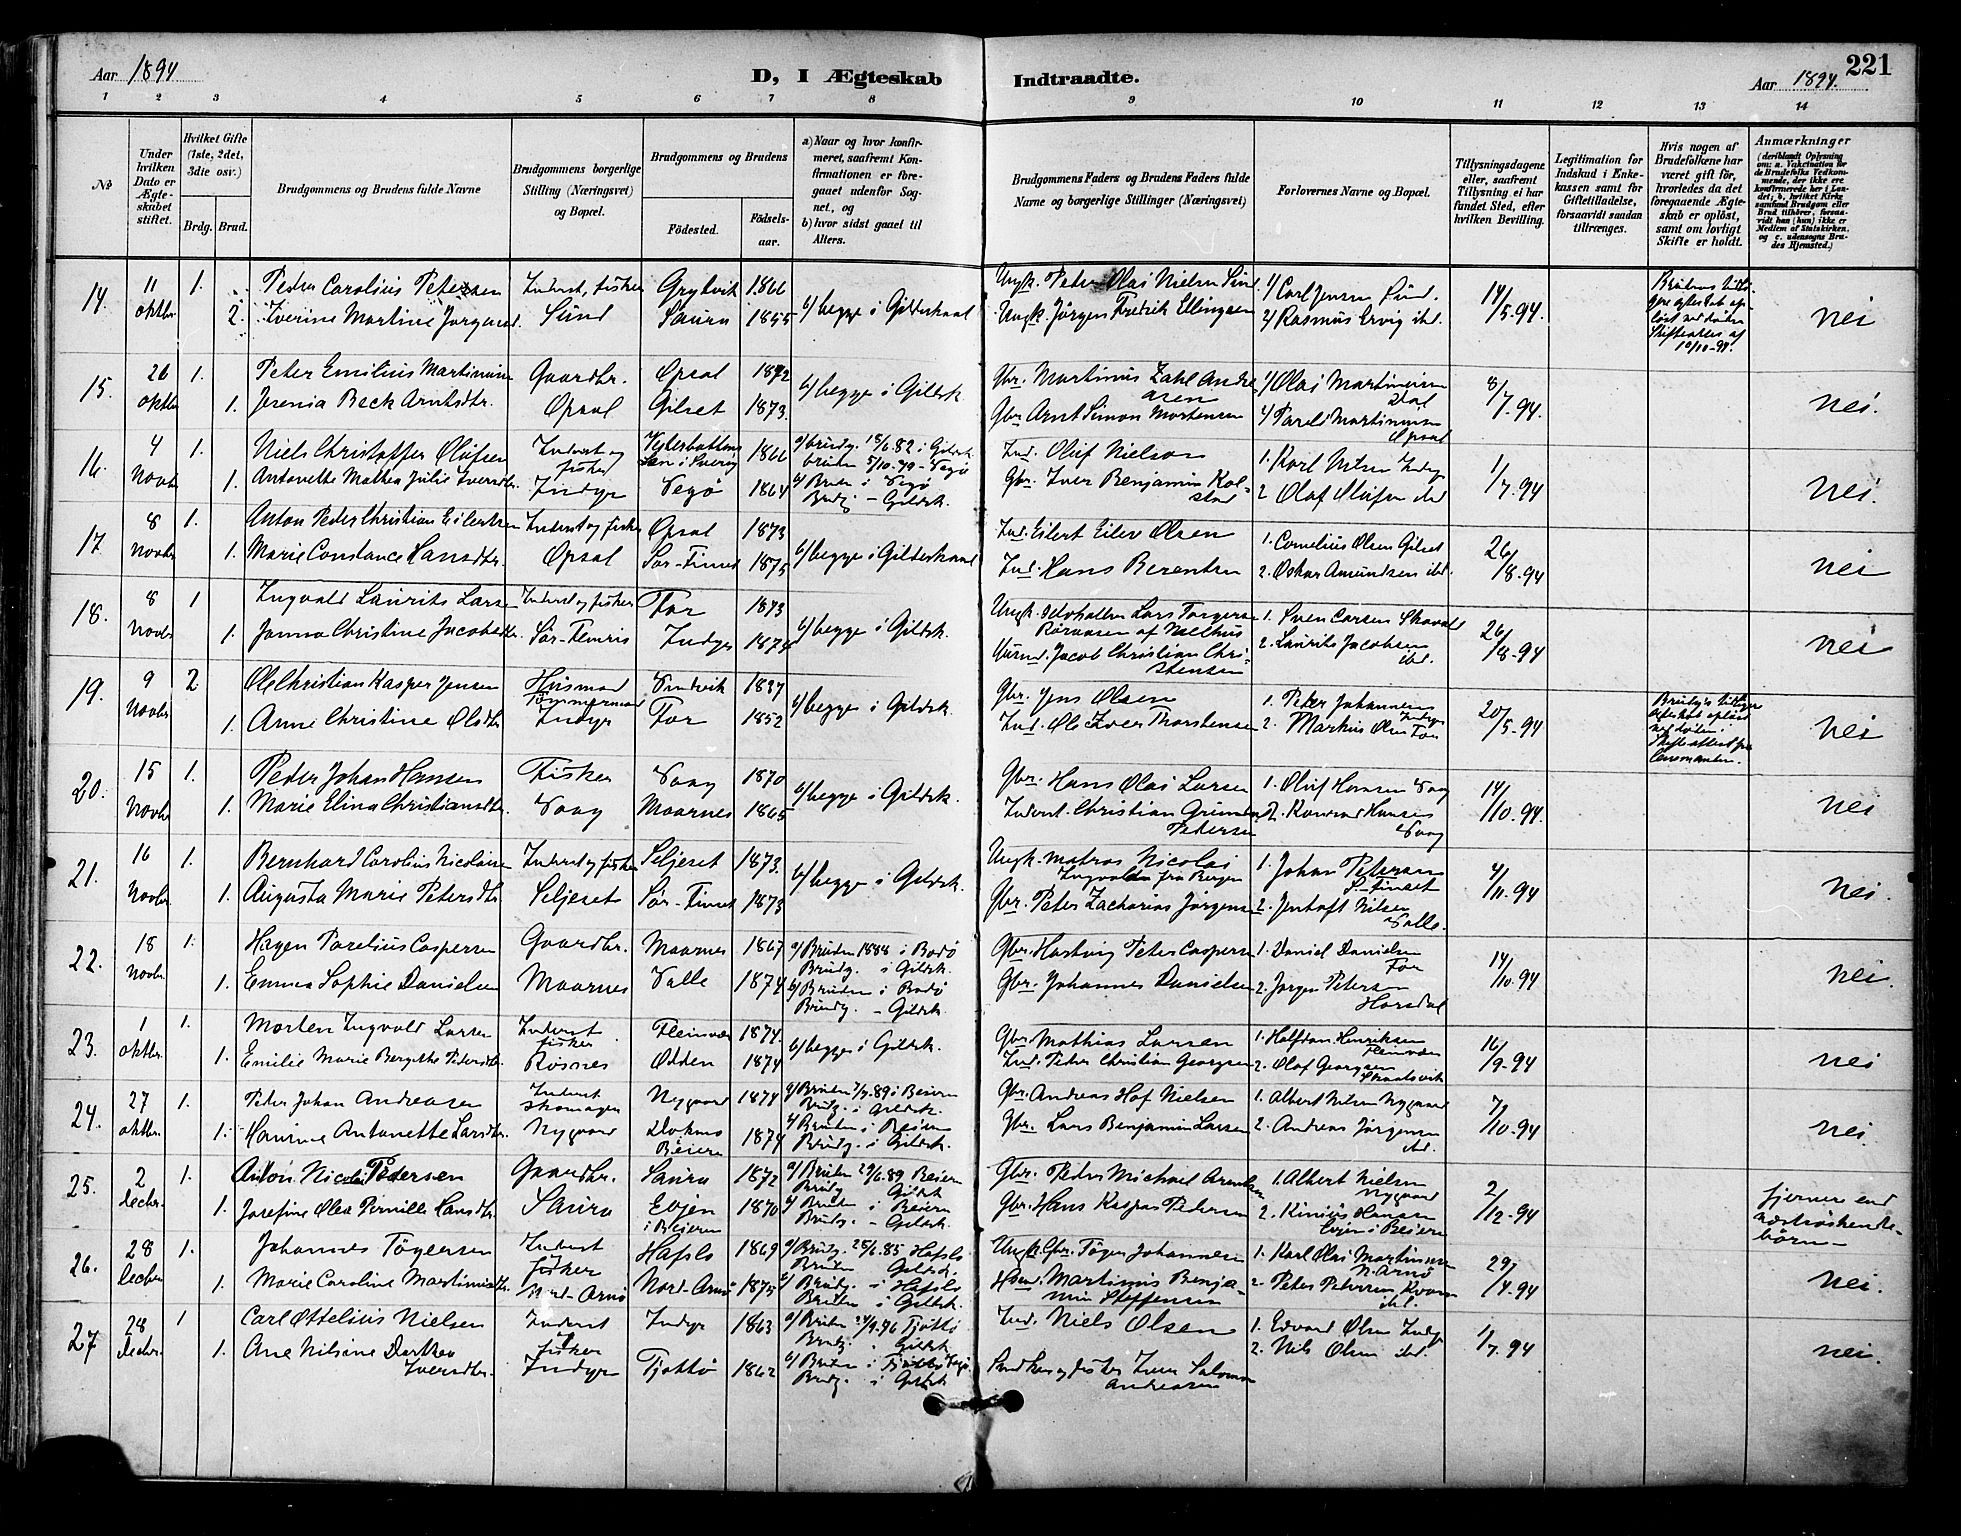 Aar 1894
D, I Ægteskab Indtraadte.
Aar 1894.
221
1 2 3 4 5 6 7 8 9 10 11 12 13 14
No
Under hvilken Dato er Ægteskabet stiftet.
Hvilket Gifte (1ste, 2det, 3die osv.)
Brdg. Brud.
Brudgommens og Brudens fulde Navne
Brudgommens borgerlige Stilling (Næringsvei) og Bopæl.
Brudgommens og Brudens
Födested.
Födselsaar.
a) Naar og hvor konfirmeret, saafremt Konfirmationen er foregaaet udenfor Sognet, og
b) hvor sidst gaaet til Alters.
Brudgommens Faders og Brudens Faders fulde Navne og borgerlige Stillinger (Næringsvei)
Forlovernes Navne og Bopæl.
Tillysningsdagene eller, saafremt Tillysning ei har fundet Sted, efter hvilken Bevilling.
Legitimation for Indskud i Enkekassen samt for Giftetilladelse, forsaavidt saadan tiltrænges.
Hvis nogen af Brudefolkene har været gift för, hvorledes da det foregaaende Ægteskab er oplöst, samt om lovligt Skifte er holdt.
Anmærkninger
(deriblandt Oplysning om: a. Vakcination for de Brudefolks Vedkommende, der ikke ere konfirmerede her i Landet; b. hvilket Kirkesamfund Brudgom eller Brud tilhörer, forsaavidt han (hun) ikke er Medlem af Statskirken, og c. udensogns Brudes Hjemsted.)
14. 11 1. Peder Carolius Petersen Inderst, fisker Grytvik 1866 b/ begge i Gildeskaal Ungk. Peder Olai Nielsen Sund 1/ Carl Jensen Sund. 14/5.94. nei
oktbr 2. Iverine Martine Jörgensd. Sund Saura 1855 Ungk. Jörgen Fredrik Ellingsen 2/ Rasmus Ervig ibd.
Skifteattest af 10/10-94.
15. 26 1. Peter Emilius Martinussen Gaardbr. Opsal 1872 b/ begge i Gildsk. Gbr. Martinus Zahl Andreasen 1/ Olai Martinussen 8/7.94. nei.
oktbr 1. Jesenia Beck Arntsdtr. Opsal Gilset 1873. Gbr Arnt Simon Mortensen 2/ Parelö Martinussen Opsal
16. 4 1. Niels Christoffer Olufsen Inderst og fisker Vesterbottens Læn i Sverig 1866 a/ brudg. 18/6.82 i Gildsk. bruden 5/10.79 - Vegö Ind. Oluf Nielsen 1. Karl Nilsen Indyr 1/7.94 nei.
Novbr 1. Antonette Mathea Julie Iversdtr. Indyr Vegö 1864 b/ Bruden i Vegö Brudg. - Gildsk. Gbr. Iver Benjamin Kolstad 2 Olaf Olufsen ibd
17. 8 1. Anton Peder Christian Eilertsen Inderst og fisker Opsal 1873 b/ begge i Gildeskaal Ind. Eilert Eilev Olsen 1. Cornelius Olsen Gilset 26/8.94 nei
Novbr 1. Marie Constance Hansdtr. Opsal Sör-Finset 1875 Ind. Hans Berentsen 2. Oskar Amundsen ibd.
18. 8 1 Ingvald Laurits Larsen Inderst og fisker For 1873 b/ begge i Gildsk. Ungk. Lars Torgersen 1. Sven Carsen 26/8-94 nei
Novbr 1. Janna Christine Jacobsdtr. Indyr 1874 Jacob Christian Christensen 2. Laurits Jacobsen ibd.
19. 9 2 Ole Christian Kasper Jensen Husmand Tömmermand Sundvik 1837 b/ begge i Gildsk. Gbr. Jens Olsen 1. Peter Johannesen Indyr 20/5-94 nei
Novbr 1. Anne Christine Olsdtr Indyr For 1852 Ind. Ole Iver Thorstensen 2. Markus Olsen For
Brudg's tidligere ægteskab oplöst ved döden. Skifteattest fra Lensmanden.
20. 15 1. Peder Johan Hansen Fisker Vaag 1870 b/ begge i Gildsk. Gbr. Hans Olai Larsen 1. Oluf Hansen Vaag 14/10.94. nei
Novbr 1. Marie Elina Christiansdtr. Vaag Maarnes 1865 Inderst. Christian Petersen 2. Konrad Hansen Vaag
21. 16 1. Bernhard Carolius Nicolaisen Inderst og fisker Seljeset 1873. b/ begge i Gildsk. Ungk. matros Nicolai fra Bergen 1. Johan Petersen S. Finset 4/11.94 nei.
Novbr 1. Augusta Marie Petersdtr. Seljeset Sör-Finset 1873 Gbr. Peter Zacharias Jörgensen 2. Jentoft Nilsen Valle.
22. 18 1. Hagen Parelius Caspersen Gaardbr. Maarnes 1867 a/ Bruden 1888 i Bodö Brudg. i Gildsk. Gbr. Hartvig Peter Caspersen 1. Daniel Danielsen For 14/10.94 nei.
Novbr. 1. Emma Sophie Danielsen Maarnes Valle 1874 b/ Bruden i Bodö Brudg. - Gildsk. Gbr. Johannes Danielsen 2. Jörgen Petersen Horsdal
23. 1 1. Morten Ingvald Larsen Inderst fisker Fleinvær 1874. b/ begge i Gildsk. Gbr Mathias Larsen 1. Halfdan Henriksen Fleinvær 16/9-94 nei
oktbr. 1. Emilie Marie Bergitte Pedersdtr. Rösnes Odden 1874 Ind. Peder Christian Georgsen 2. Olaf Georgsen
24. 27 1. Peter Johan Andreasen Inderst skomager Nygaard 1874 a/ Bruden 7/7.89 i Beieren Brudg. i Gildsk. Gbr. Andreas Hof Nielsen 1. Albert Nilsen Nygaard 7/10.94 nei.
oktbr. 1. Hansine Antonette Larsdtr. Nygaard Beiern 1874 b/ Bruden i Beiern Brudg. i Gildsk. Gbr. Lars Benjamin Larsen 2. Andreas Jörgensen ibd.
25. 2 1. Anton Nicolai Pedersen Gaardbr. Saura 1872 a/ Bruden 29/6.89 Beiern Brudg. Gildsk Gbr. Peder Michael 1. Albert Nielsen Nygaard 2/12-94 fjerner end næstsöskendebörn -
Decbr. 1. Josefine Olea Pernille Hansdtr. Saura Evjen i Beieren 1870 b/ Bruden i Beiern Brudg. - Gildsk. Gbr. Hans Kaspar Pedersen 2. Hansen Evjen i Beiern
26. 28 1. Johannes Tögersen Inderst fisker Hafslo 1869 a/ Brudg. 25/6.85 Hafslo Bruden Gildsk. Ungk. Gbr. Töger Johannesen 1. Karl Olai Martinussen N. Arnö 29/4.94 nei.
Decbr 1. Marie Caroline Martinusdtr. Nord-Arnö Nord-Arnö 1875 b/ Brudg. i Hafslo Bruden i Gildsk. Martinus Benjamin Steffensen 2. Peter Petersen ibd.
27 28 1 Carl Ottelius Nielsen Inderst fisker Indyr 1863 a/ Bruden 24/9.76 Tjöttö Brudg. Gildsk Ind. Niels Olsen 1. Edvard Olsen Indyr 1/7.94 nei.
Decbr. 1. Ane Nilsine Dorthea Iversdtr. Indyr Tjöttö 1862 b/ Bruden i Tjöttö Brudg. i Gildsk Iver Salomon Andreasen 2. Nils Olsen ibd.